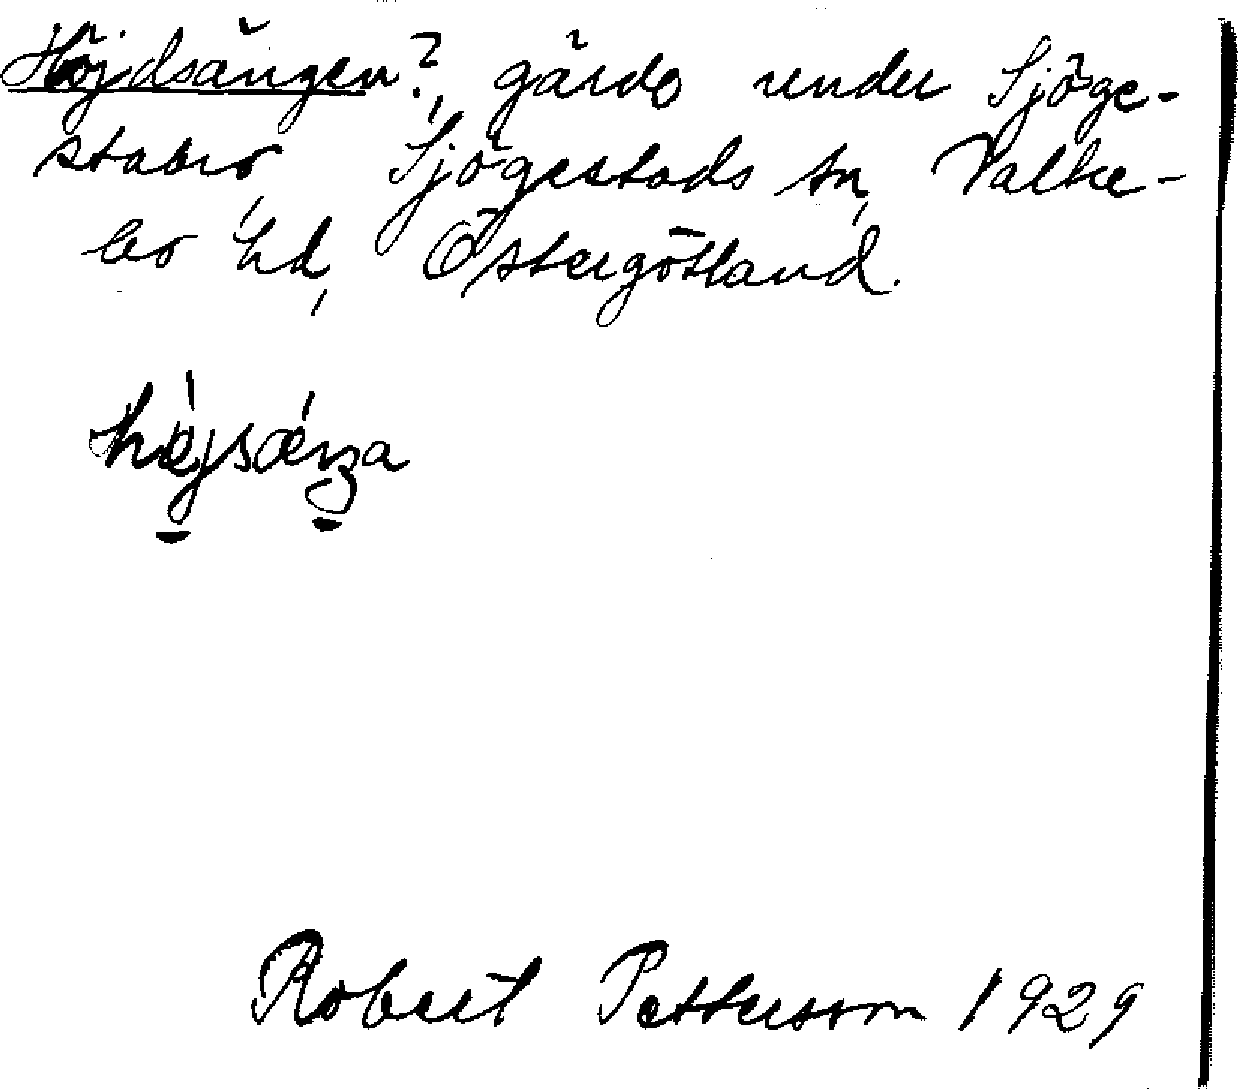 Höjdsängen?, gärde under Sjöge-
stabro, Sjögestads sn, Valke-
bo hd, Östergötland.
Robert Pettersson 1929